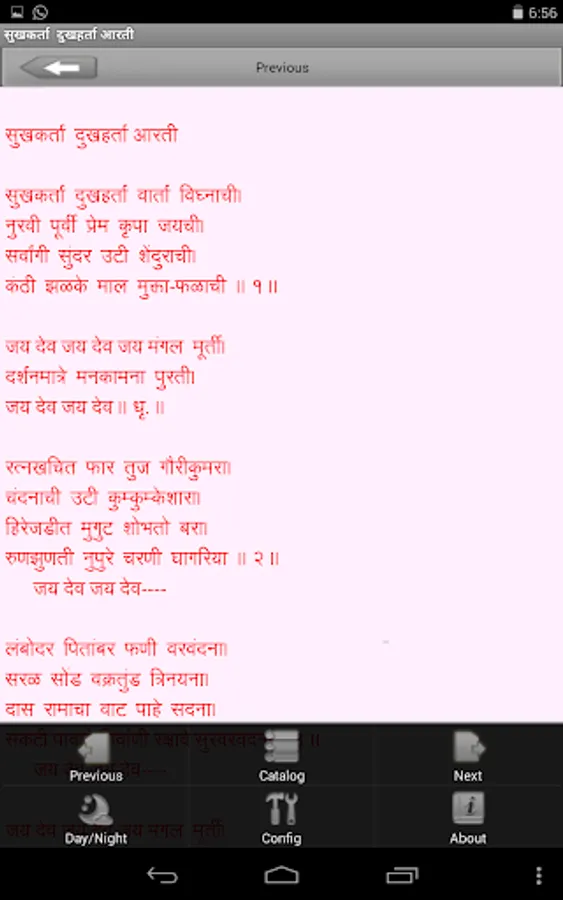 6:56
सुखकर्ता दुखहर्ता आरती
Previous
सुखकर्ता दुखहर्ता आरती
सुखकर्ता दुखहर्ता वार्ता विघ्नाची।
नुरवी पूर्वी प्रेम कृपा जयची।
सर्वांगी सुंदर उटी शेंदुराची।
कंठी झळके माल मुक्ता-फळाची ॥ १ ॥
जय देव जय देव जय मंगल मूर्ती।
दर्शनमात्रे मनकामना पुरती।
जय देव जय देव ॥ धृ. ॥
रत्नखचित फार तुज गौरीकुमरा।
चंदनाची उटी कुम्कुम्केशारा।
हिरेजडीत मुगुट शोभतो बरा।
रुणझुणती नुपुरे चरणी घागरिया ॥ २ ॥
जय देव जय देव----
लंबोदर पितांबर फणी वरवंदना।
सरळ सोंड वक्रतुंड त्रिनयना।
दास रामाचा वाट पाहे सदना।
संकटी
जय देव जय देव----
Previous
Catalog
Next
जय देव जय देव जय मंगल मूर्ती।
Day/Night
Config
About